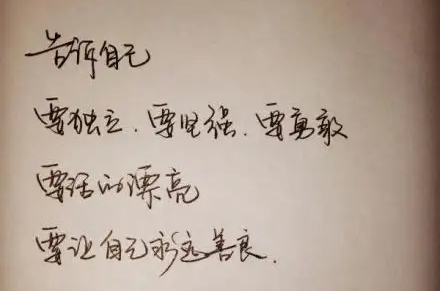 告诉自己
要独立.要坚强.要勇敢
要活的漂亮
要让自己永远善良.